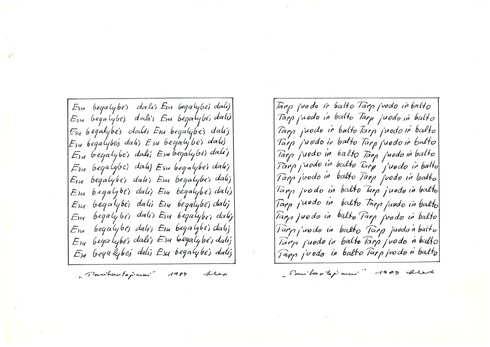 Esu begalybės dalis Esu begalybės dalis
Esu begalybės dalis Esu begalybės dalis
Esu begalybės dalis Esu begalybės dalis
Esu begalybės dalis Esu begalybės dalis
Esu begalybės dalis Esu begalybės dalis
Esu begalybės dalis Esu begalybės dalis
Esu begalybės dalis Esu begalybės dalis
Esu begalybės dalis Esu begalybės dalis
Esu begalybės dalis Esu begalybės dalis
Esu begalybės dalis Esu begalybės dalis
Esu begalybės dalis Esu begalybės dalis
Esu begalybės dalis Esu begalybės dalis
Esu begalybės dalis Esu begalybės dalis
„Pasikartojimai“ 1989
Tarp juodo ir balto Tarp juodo ir balto
Tarp juodo ir balto Tarp juodo ir balto
Tarp juodo ir balto Tarp juodo ir balto
Tarp juodo ir balto Tarp juodo ir balto
Tarp juodo ir balto Tarp juodo ir balto
Tarp juodo ir balto Tarp juodo ir balto
Tarp juodo ir balto Tarp juodo ir balto
Tarp juodo ir balto Tarp juodo ir balto
Tarp juodo ir balto Tarp juodo ir balto
Tarp juodo ir balto Tarp juodo ir balto
Tarp juodo ir balto Tarp juodo ir balto
Tarp juodo ir balto Tarp juodo ir balto
Tarp juodo ir balto Tarp juodo ir balto
„Pasikartojimai“ 1989